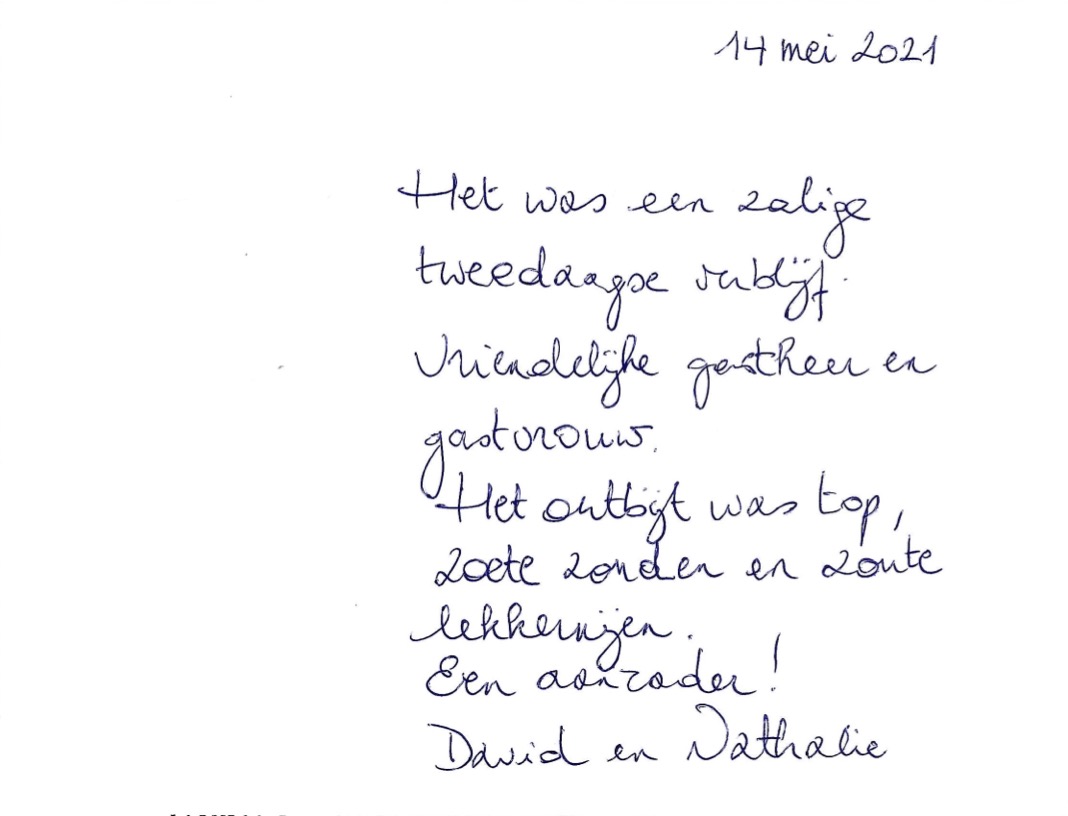 14 mei 2021
Het was een zalige
tweedaagse verblijf.
Vriendelijke gastheer en
gastvrouw.
Het ontbijt was top,
zoete zonden en zoute
lekkernijen.
Een aanrader!
David en Nathalie